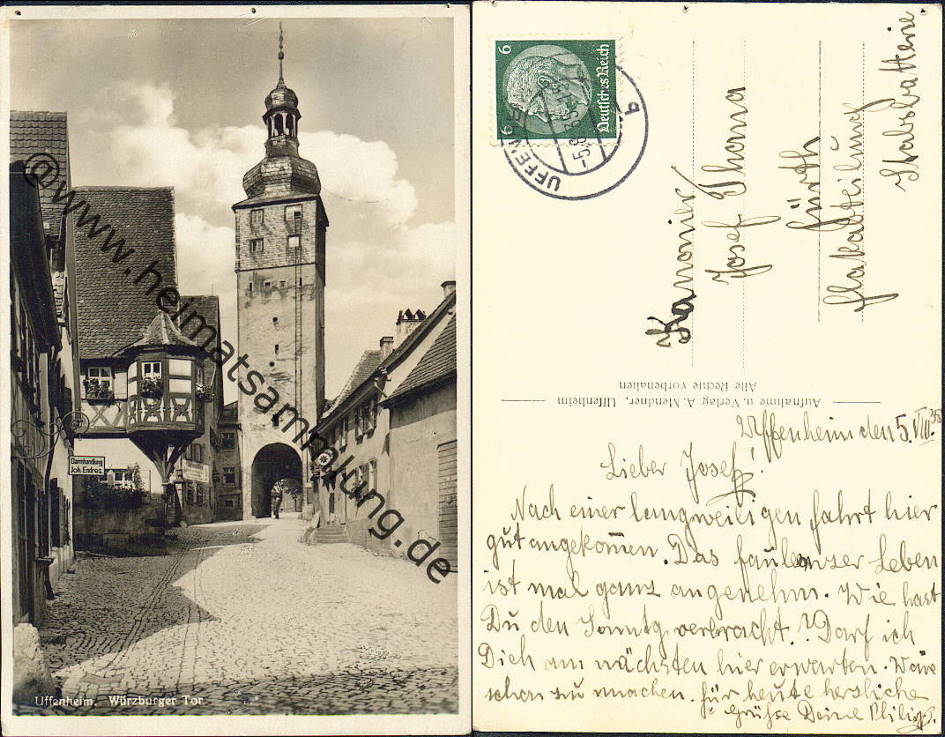 @www.heimatsammlung.de
Darmhandlung
Joh. Endres
Uffenheim. Würzburger Tor
6 6
Deutsches Reich
UFFENHEIM
b
Kanonier
Josef Thoma
Fürth
Flakabteilung
Stabsbatterie
Aufnahme u. Verlag A. Mendner, Uffenheim
Alle Rechte vorbehalten
Uffenheim den 5. VIII. 35
Lieber Josef!
Nach einer langweiligen Fahrt hier
gut angekommen. Das faulenzer Leben
ist mal ganz angenehm. Wie hast
Du den Sonntg verbracht.? Darf ich
Dich am nächsten hier erwarten. Wäre
schon zu machen. Für heute herzliche
Grüße Deine